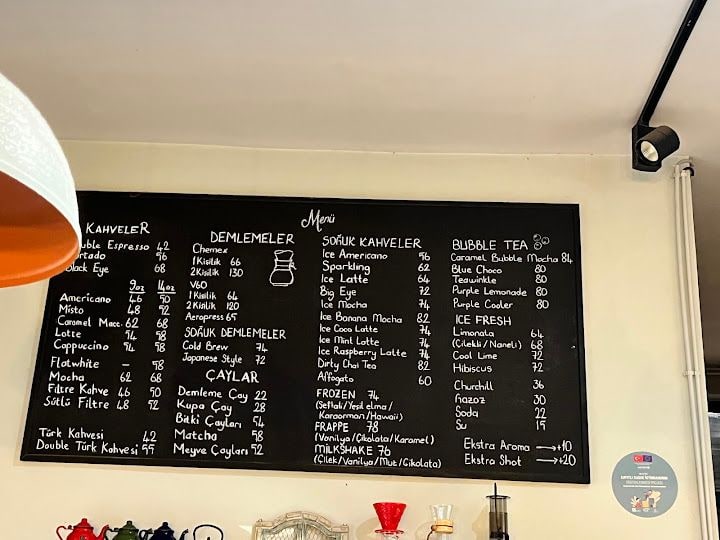 Menü
KAHVELER
uble Espresso 42
rtado 56
lack Eye 68
9oz 14oz
Americano 46 50
Misto 48 52
Caramel Macc. 62 68
Latte 54 58
Cappuccino 54 58
Flatwhite — 58
Mocha 62 68
Filtre Kahve 46 50
Sütlü Filtre 48 52
Türk Kahvesi 42
Double Türk Kahvesi 55
DEMLEMELER
Chemex
1 Kişilik 66
2 Kişilik 130
V60
1 Kişilik 64
2 Kişilik 120
Aeropress 65
SOĞUK DEMLEMELER
Cold Brew 74
Japanese Style 72
ÇAYLAR
Demleme Çay 22
Kupa Çay 28
Bitki Çayları 54
Matcha 58
Meyve Çayları 52
SOĞUK KAHVELER
Ice Americano 56
Sparkling 62
Ice Latte 64
Big Eye 72
Ice Mocha 74
Ice Banana Mocha 82
Ice Coco Latte 74
Ice Mint Latte 74
Ice Raspberry Latte 74
Dirty Chai Tea 82
Affogato 60
FROZEN 74
(Şeftali/Yeşil elma/
Karaorman/Hawaii)
FRAPPE 78
(Vanilya/Çikolata/Karamel)
MİLKSHAKE 76
(Çilek/Vanilya/Muz/Çikolata)
BUBBLE TEA
Caramel Bubble Mocha 84
Blue Choco 80
Teawinkle 80
Purple Lemonade 80
Purple Cooler 80
ICE FRESH
Limonata 64
(Çilekli/Naneli) 68
Cool Lime 72
Hibiscus 72
Churchill 36
Gazoz 30
Soda 22
Su 15
Ekstra Aroma →+10
Ekstra Shot →+20